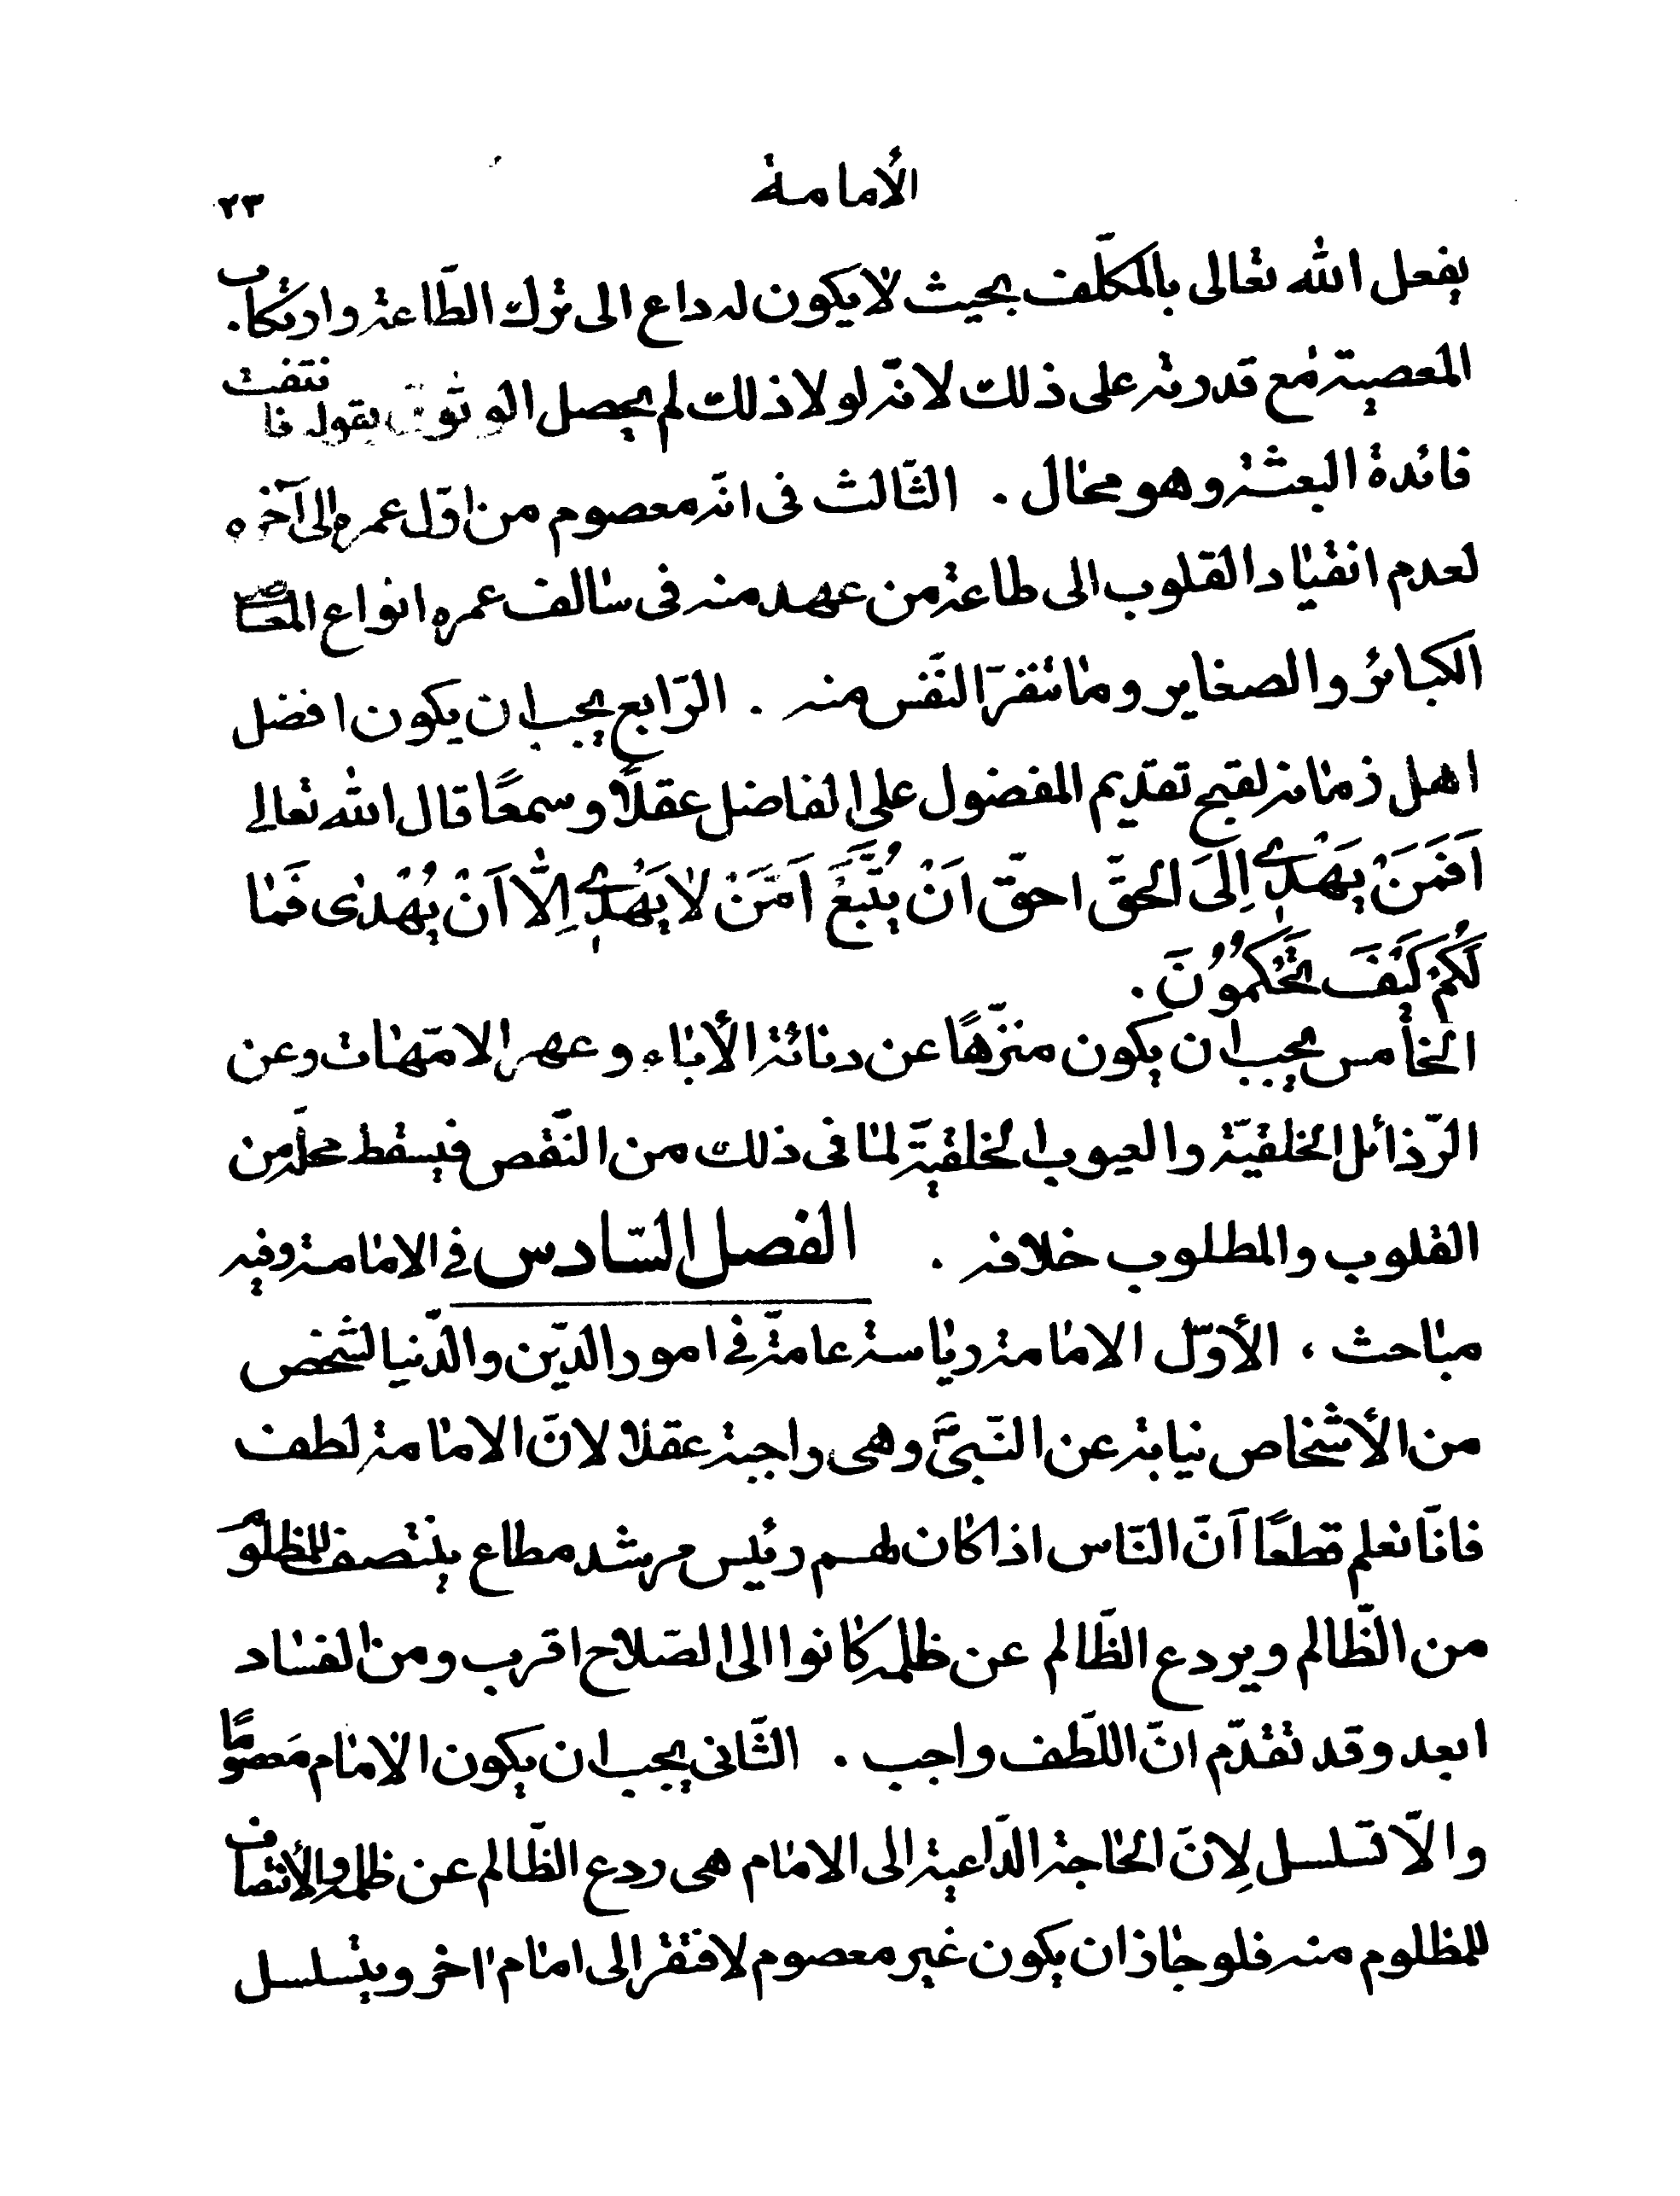 الأمامة
٢٣
يفعل الله تعالى بالمكلّف بحيث لا يكون له داع الى ترك الطّاعة وارتكاب
المعصية مع قدرته على ذلك لانّه لولا ذلك لم يحصل الوثوق بقوله فانتفت
فائدة البعثة وهو محال . الثّالث فى انّه معصوم من اوّل عمره الى آخره
لعدم انقياد القلوب الى طاعة من عهد منه فى سالف عمره انواع المعاصى
الكبائر والصغاير وما تنفّر النّفس منه . الرّابع يجب ان يكون افضل
اهل زمانه لقبح تقديم المفضول على الفاضل عقلاً وسمعًا قال الله تعالى
اَفَمَنْ يَهْدِي اِلَى الحَقّ احقّ اَنْ يُتَّبَعَ اَمَّنْ لا يَهِدِّي اِلّا اَنْ يُهْدٰى فَمَا
لَكُمْ كَيْفَ تَحْكُمُونَ .
الخامس يجب ان يكون منزّهًا عن دنائة الأباء وعهر الامّهات وعن
الرّذائل الخلقيّة والعيوب الخلقيّة لما فى ذلك من النّقص فيسقط محلّه من
القلوب والمطلوب خلافه . الفصل السّادس في الامامة وفيه
مباحث ، الأوّل الامامة رياسة عامّة في امور الدّين والدّنيا لشخص
من الأشخاص نيابة عن النّبىّ وهى واجبة عقلا لانّ الامامة لطف
فانّا نعلم قطعًا آنّ النّاس اذا كان لهم رئيس مرشد مطاع ينتصف للمظلوم
من الظّالم ويردع الظّالم عن ظلمه كانوا الى الصّلاح اقرب ومن الفساد
ابعد وقد تقدّم انّ اللّطف واجب . الثّانى يجب ان يكون الامام مَعصومًا
والّا تسلسل لِانّ الحاجة الدّاعية الى الامام هى ردع الظّالم عن ظلمه والأنتصاف
للمظلوم منه فلو جاز ان يكون غير معصوم لافتقر الى امام اخر ويتسلسل